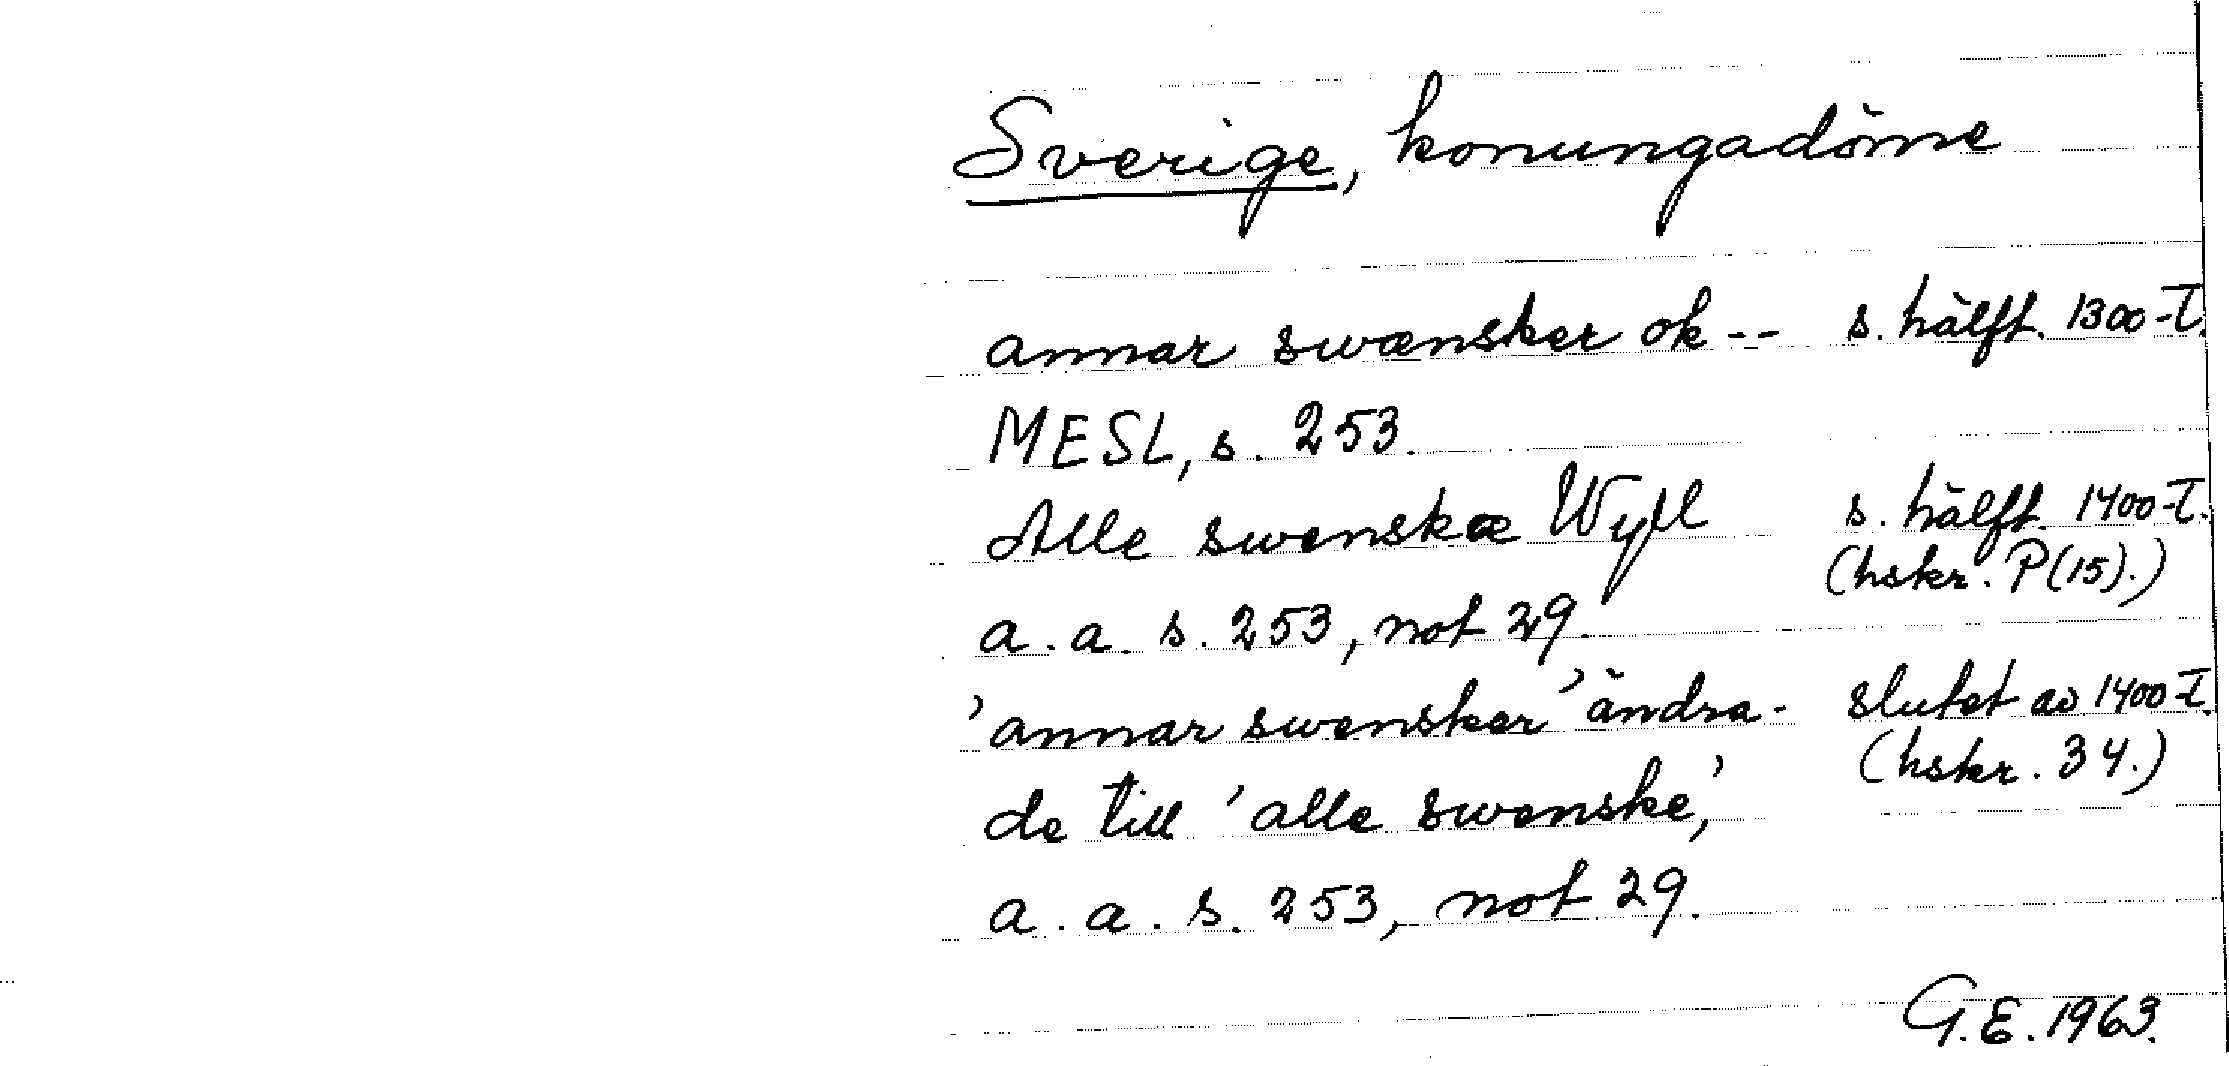 Sverige, konungadöme
annar swænsker ok -- s. hälft. 1300-t.
MESL, s. 253.
Alle swenskæ Wyll s. hälft. 1400-t.
(hskr. P (15).)
a. a. s. 253, not 29.
'annar swensker' ändra- slutet av 1400-t.
(hskr. 34.)
de till 'alle swenske,'
a. a. s. 253, not 29.
G.E. 1963.